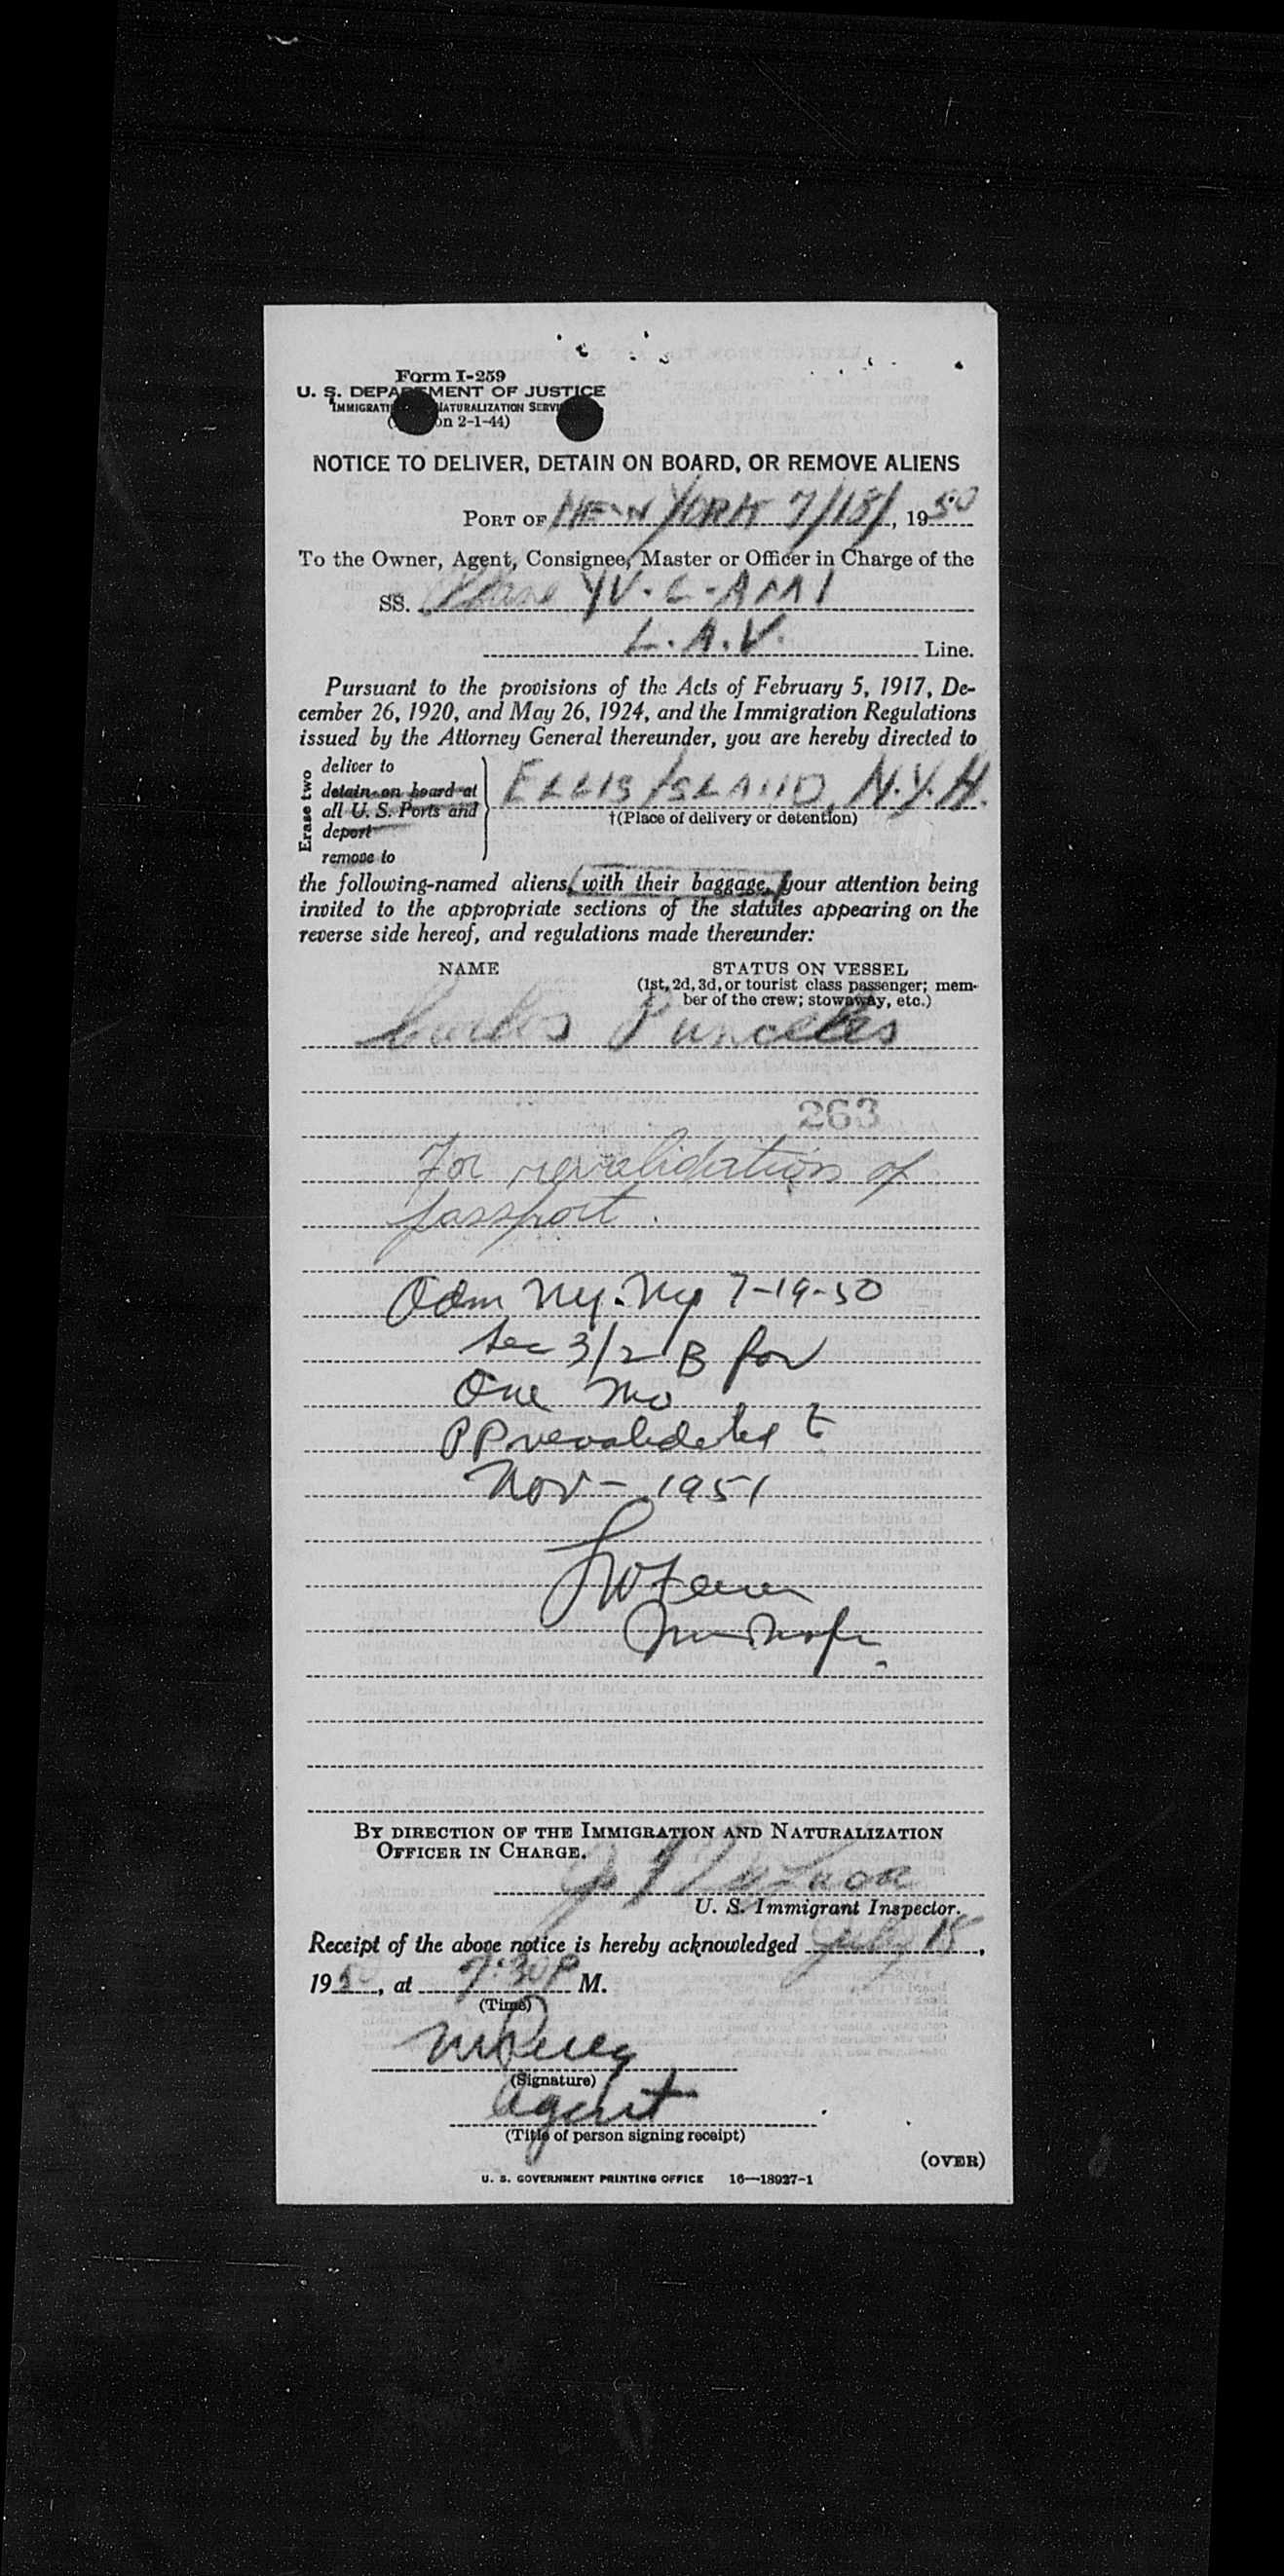 Form I-259
U. S. DEPARTMENT OF JUSTICE
IMMIGRATI NATURALIZATION SERVI
( on 2-1-44)
NOTICE TO DELIVER, DETAIN ON BOARD, OR REMOVE ALIENS
PORT OF NEW YORK 7/18/, 1950
To the Owner, Agent, Consignee, Master or Officer in Charge of the
SS. Plane YV-C-AMI
L.A.V. Line.
Pursuant to the provisions of the Acts of February 5, 1917, De-
cember 26, 1920, and May 26, 1924, and the Immigration Regulations
issued by the Attorney General thereunder, you are hereby directed to
Erase two
deliver to
detain on board at
all U. S. Ports and
deport
remove to
ELLIS ISLAND, N.Y.H.
†(Place of delivery or detention)
the following-named aliens, with their baggage, your attention being
invited to the appropriate sections of the statutes appearing on the
reverse side hereof, and regulations made thereunder:
NAME STATUS ON VESSEL
(1st, 2d, 3d, or tourist class passenger; mem-
ber of the crew; stowaway, etc.)
Carlos Punceles
263
For revalidation of
passport.
Adm NY. NY 7-19-50
Sec 3/2 B for
One Mo
PP revalidated to
Nov- 1951
BY DIRECTION OF THE IMMIGRATION AND NATURALIZATION
OFFICER IN CHARGE.
U. S. Immigrant Inspector.
Receipt of the above notice is hereby acknowledged July 18,
1950, at 7:30 P M.
(Time)
(Signature)
Agent
(Title of person signing receipt)
(OVER)
U. S. GOVERNMENT PRINTING OFFICE 16—18927-1